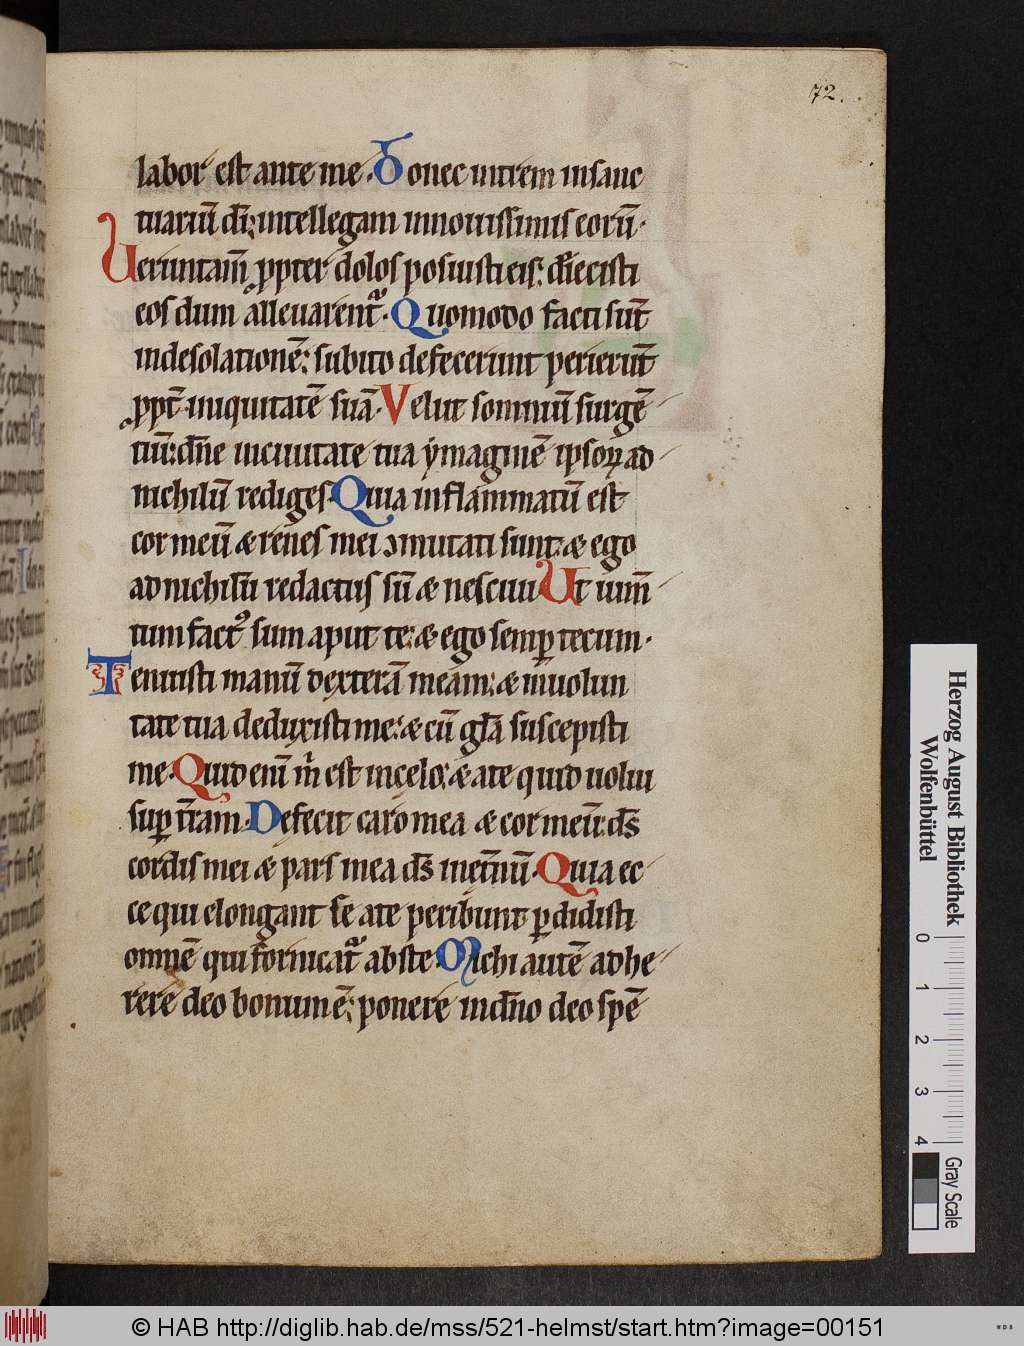 72.
labor est ante me. Donec intrem insanc
tuariū dī: intellegam innouissimis eorū.
Ueruntam̄ ꝓpter dolos posuisti eis: dīecisti
eos dum alleuarent᷑. Quomodo facti sūt
indesolationē: subito defecerunt perierūt
ꝓpt̄ iniquitatē suā. Velut somniū surgē
tiū: dn̄e inciuitate tua ẏmaginē ipsoꝝ ad
nichilū rediges. Quia inflammatū est
cor meū & renes mei ↄmutati sunt: & ego
ad nichilū redactus sū & nesciui Ut ium̄
tum factꝰ sum aput te: & ego semꝑ tecum.
Tenuisti manū dexterā meam: & inuolun
tate tua deduxisti me: & cū gl̄a suscepisti
me. Quid enī m̄ est incelo: & ate quid uolui
suꝑ t̄ram. Defecit caro mea & cor meū: ds̄
cordis mei & pars mea ds̄ inęt̄nū. Quia ec
ce qui elongant se ate peribunt ꝑdidisti
omnē qui fornicat᷑ abste. Michi autē adhe
rere deo bonum ē: ponere indn̄o deo spē
Herzog August Bibliothek
Wolfenbüttel
0 1 2 3 4
Gray Scale
© HAB http://diglib.hab.de/mss/521-helmst/start.htm?image=00151